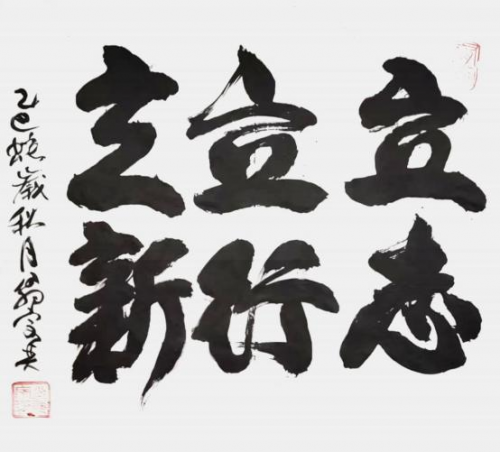 立志
立行
立新
乙巳蛇歲秋月